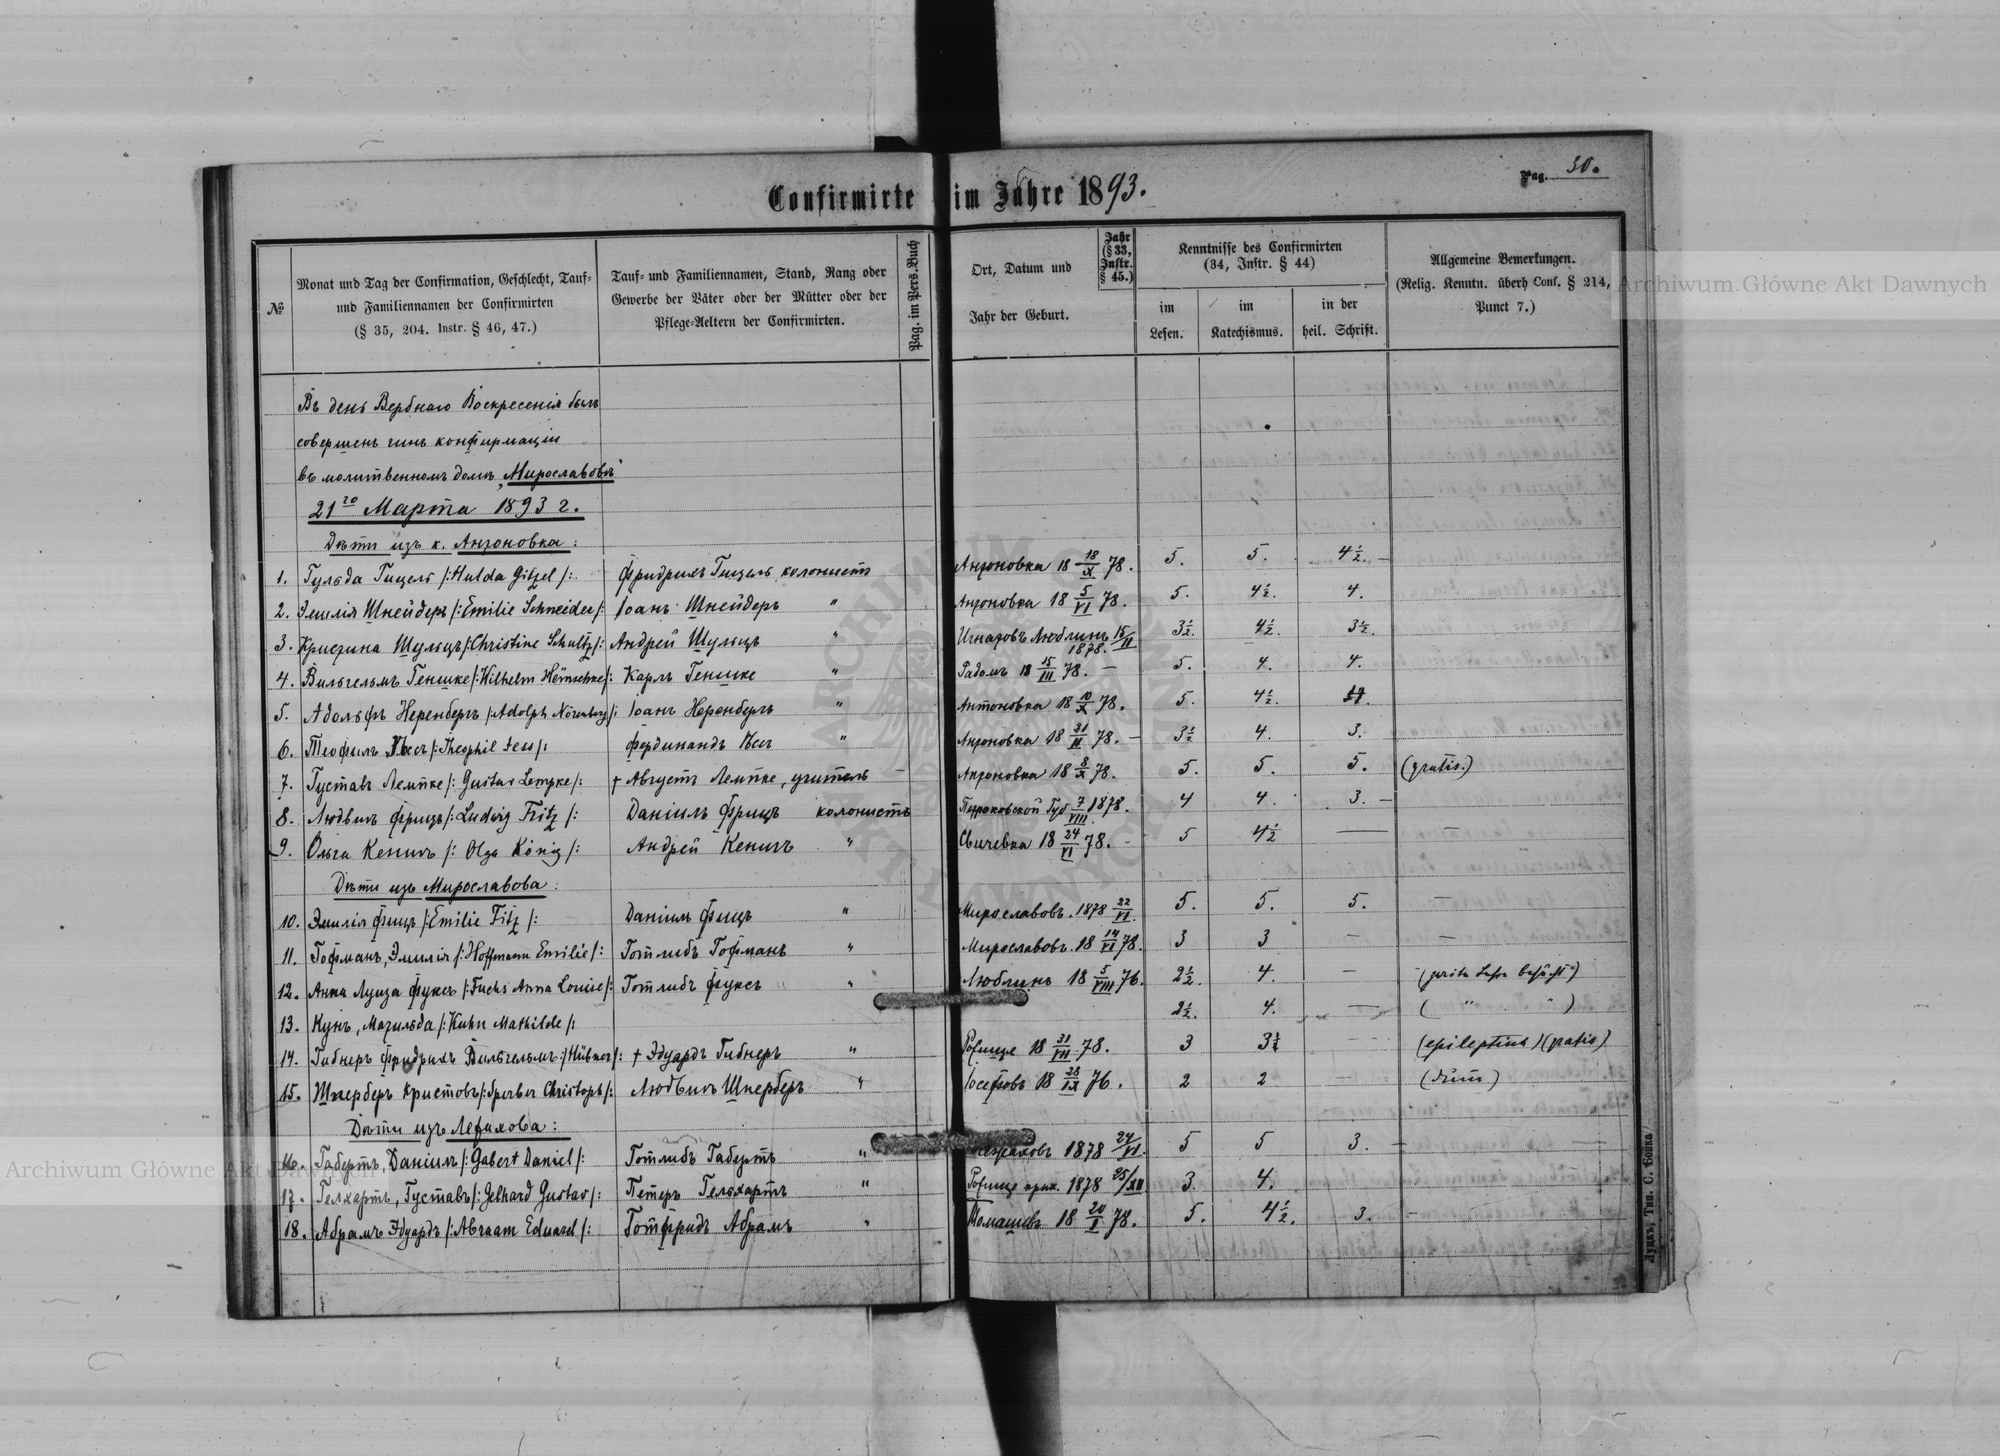 Confirmirte im Jahre 1893.
Pag. 30.
№
Monat und Tag der Confirmation, Geschlecht, Tauf-
und Familiennamen der Confirmirten
(§ 35, 204. Instr. § 46, 47.)
Tauf- und Familiennamen, Stand, Rang oder
Gewerbe der Väter oder der Mütter oder der
Pflege-Aeltern der Confirmirten.
Pag. im Pers.Buch
Ort, Datum und
Jahr der Geburt.
Jahr
(§ 33,
Instr.
§ 45.)
Kenntnisse des Confirmirten
(34, Instr. § 44)
im
Lesen.
im
Katechismus.
in der
heil. Schrift.
Allgemeine Bemerkungen.
(Relig. Kenntn. überh Conf. § 214,
Punct 7.)
Въ день Вербнаго Воскресенія былъ
совершенъ чинъ конфирмаціи
въ молитвенномъ домѣ „Мирославовъ"
21го Марта 1893 г.
Дѣти изъ к. Антоновка:
1. Гульда Гицель /:Hulda Gitzel/: Фридрихъ Гицель колонистъ Антоновка 18 18/X 78. 5. 5. 4½.
2. Эмилія Шнейдеръ /:Emilie Schneider/: Іоанъ Шнейдеръ " Антоновка 18 5/VI 78. 5. 4½. 4.
3. Кристина Шульцъ /:Christine Schultz/: Андрей Шульцъ " Люблинъ 15/II 1878. 3½. 4½. 3½.
4. Вильгельмъ Геншке /:Wilhelm Hemschke/: Карлъ Геншке " Радомъ 18 15/III 78. 5. 4. 4.
5. Адольфъ Неренбергъ /:Adolph Nörenberg/: Іоанъ Неренбергъ " Антоновка 18 10/X 78. 5. 4½.
6. Теофилъ /:Theophil Jess/: Фердинандъ " Антоновка 18 78. 3½ 4. 3.
7. Густавъ Лемпке /:Gustav Lempke/: † Августъ Лемпке, учитель Антоновка 18 8/X 78. 5. 5. 5. (gratis.)
8. Людвигъ Фрицъ /:Ludwig Fritz/: Даніилъ Фрицъ колонистъ Петроковской Губ 7/VIII 1878. 4 4. 3.
9. Ольга Кенигъ /:Olga König/: Андрей Кенигъ " Свичевка 18 24/VI 78. 5 4½
Дѣти изъ Мирославова:
10. Эмилія Фицъ /:Emilie Fitz/: Даніилъ Фицъ " Мирославовъ. 1878 22/VI. 5. 5. 5.
11. Гофманъ, Эмилія /:Hoffmann Emilie/: Готлибъ Гофманъ " Мирославовъ. 18 14/VI 78. 3 3
12. Анна Луиза Фуксъ /:Fuchs Anna Louise/: Готлибъ Фуксъ " Люблинъ 18 5/VIII 76. 2½. 4.
13. Кунъ, Матильда /:Kuhn Mathilde/: 2½. 4. ( " " )
14. Гибнеръ Фридрихъ Вильгельмъ /:Hübner/: † Эдуардъ Гибнеръ " Рожище 18 31/VII 78. 3 3½ (gratis)
15. Шперберъ Кристовъ /:Sperber Christoph/: Людвигъ Шперберъ " Іосефовъ 18 28/IX 76. 2 2
Дѣти изъ Лежахова:
16. Габертъ, Даніилъ /:Gabert Daniel/: Готлибъ Габертъ " 1878 24/VI. 5 5 3.
17. Гелхартъ, Густавъ /:Gelhard Gustav/: Петеръ Гельхартъ " Рожище прих. 1878 25/XII 3. 4.
18. Абрамъ Эдуардъ /:Abraam Eduard/: Готфридъ Абрамъ " Томашевъ 18 20/I 78. 5. 4½. 3.
Луцкъ, Тип. С. Бонка
Archiwum Główne Akt Dawnych
Archiwum Główne Akt Dawnych
ARCHIWUM GŁÓWNE AKT DAWNYCH